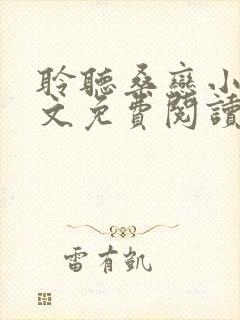 聆聽桑戀小
文免費閱讀
雷有凱